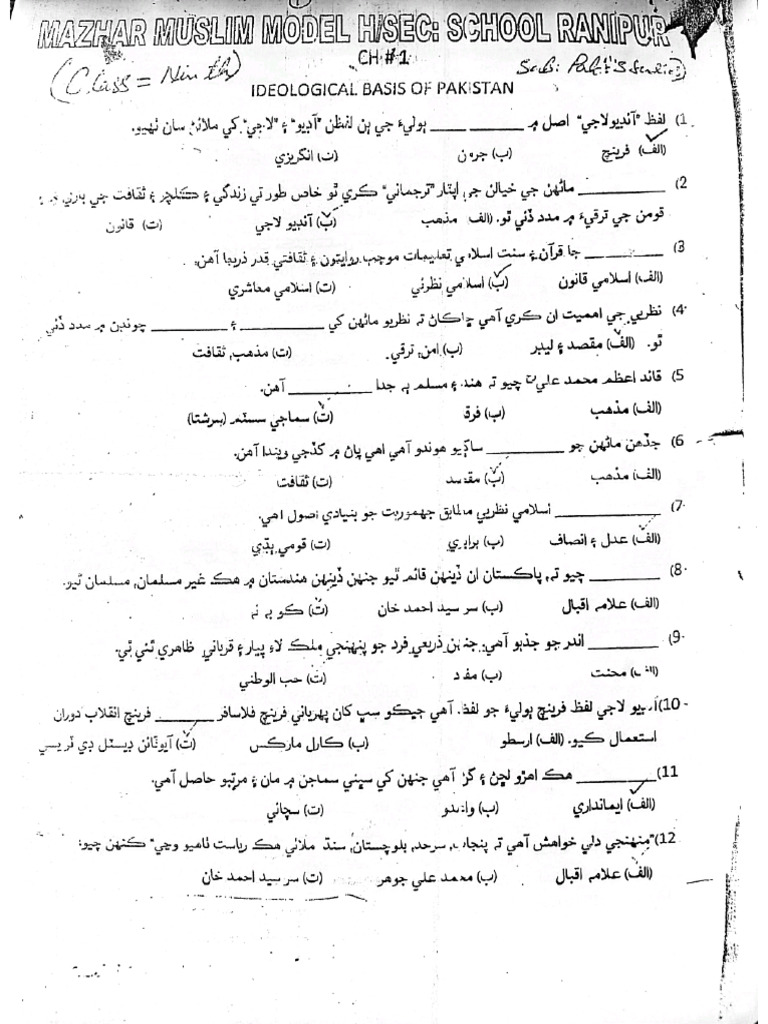 MAZHAR MUSLIM MODEL H/SEC: SCHOOL RANIPUR
CH # 1
(Class = Ninth)
Sub: Pak's
IDEOLOGICAL BASIS OF PAKISTAN
1) لفظ ”آئڊيولاجي“ اصل ۾ ________ ٻوليءَ جي ٻن لفظن ”آئڊيو“ ۽ ”لاجي“ کي ملائڻ سان ٺهيو.
(الف) فرينچ (ب) جرمن (ت) انگريزي
2) ________ ماڻهن جي خيالن جي اپٽار ”ترجماني“ ڪري ٿو خاص طور تي زندگي ۽ ڪلچر ۽ ثقافت جي
قومن جي ترقيءَ ۾ مدد ڏئي ٿو. (الف) مذهب (ب) آئڊيو لاجي (ت) قانون
3) ________ جا قرآن ۽ سنت اسلامي تعليمات موجب روايتون ۽ ثقافتي قدر ذريعا آهن.
(الف) اسلامي قانون (ب) اسلامي نظرئي (ت) اسلامي معاشري
4) نظريي جي اهميت ان ڪري آهي ڇاڪاڻ ته نظريو ماڻهن کي ________ ۽ ________ چونڊڻ ۾ مدد ڏئي
ٿو. (الف) مقصد ۽ ليڊر (ب) امن، ترقي. (ت) مذهب، ثقافت
5) قائد اعظم محمد علي چيو ته هندو ۽ مسلم ٻه جدا ________ آهن.
(الف) مذهب (ب) فرقا (ت) سماجي سسٽم (سرشتا)
6) جڏهن ماڻهن جو ________ ساڳيو هوندو آهي اهي پاڻ ۾ گڏجي ويندا آهن.
(الف) مذهب (ب) مقصد (ت) ثقافت
7) ________ اسلامي نظريي مطابق جمهوريت جو بنيادي اصول آهي.
(الف) عدل ۽ انصاف (ب) برابري (ت) قومي ٻڌي
8) ________ چيو ته، پاڪستان ان ڏينهن قائم ٿيو جنهن ڏينهن هندستان ۾ هڪ غير مسلمان، مسلمان ٿيو.
(الف) علامه اقبال (ب) سر سيد احمد خان (ت) ڪو به نه
9) ________ اندر جو جذبو آهي، جنهن ذريعي فرد جو پنهنجي ملڪ لاءِ پيار ۽ قرباني ظاهري ٿئي ٿي.
(الف) محنت (ب) مفاد (ت) حب الوطني
10) آئڊيو لاجي لفظ فرينچ ٻوليءَ جو لفظ آهي جيڪو سڀ کان پهرياني فرينچ فلاسافر ________ فرينچ انقلاب دوران
استعمال ڪيو. (الف) ارسطو (ب) ڪارل مارڪس (ت) ڊيسٽل ڊي ٽريسي
11) ________ هڪ اهڙو لڇڻ ۽ گڻ آهي جنهن کي سڀني سماجن ۾ مان ۽ مرتبو حاصل آهي.
(الف) ايمانداري (ب) (ت) سچائي
12) ”منهنجي دلي خواهش آهي ته پنجاب، سرحد، بلوچستان، سنڌ ملائي هڪ رياست ٺاهيو وڃي“ ڪنهن چيو؟
(الف) علامه اقبال (ب) محمد علي جوهر (ت) سر سيد احمد خان